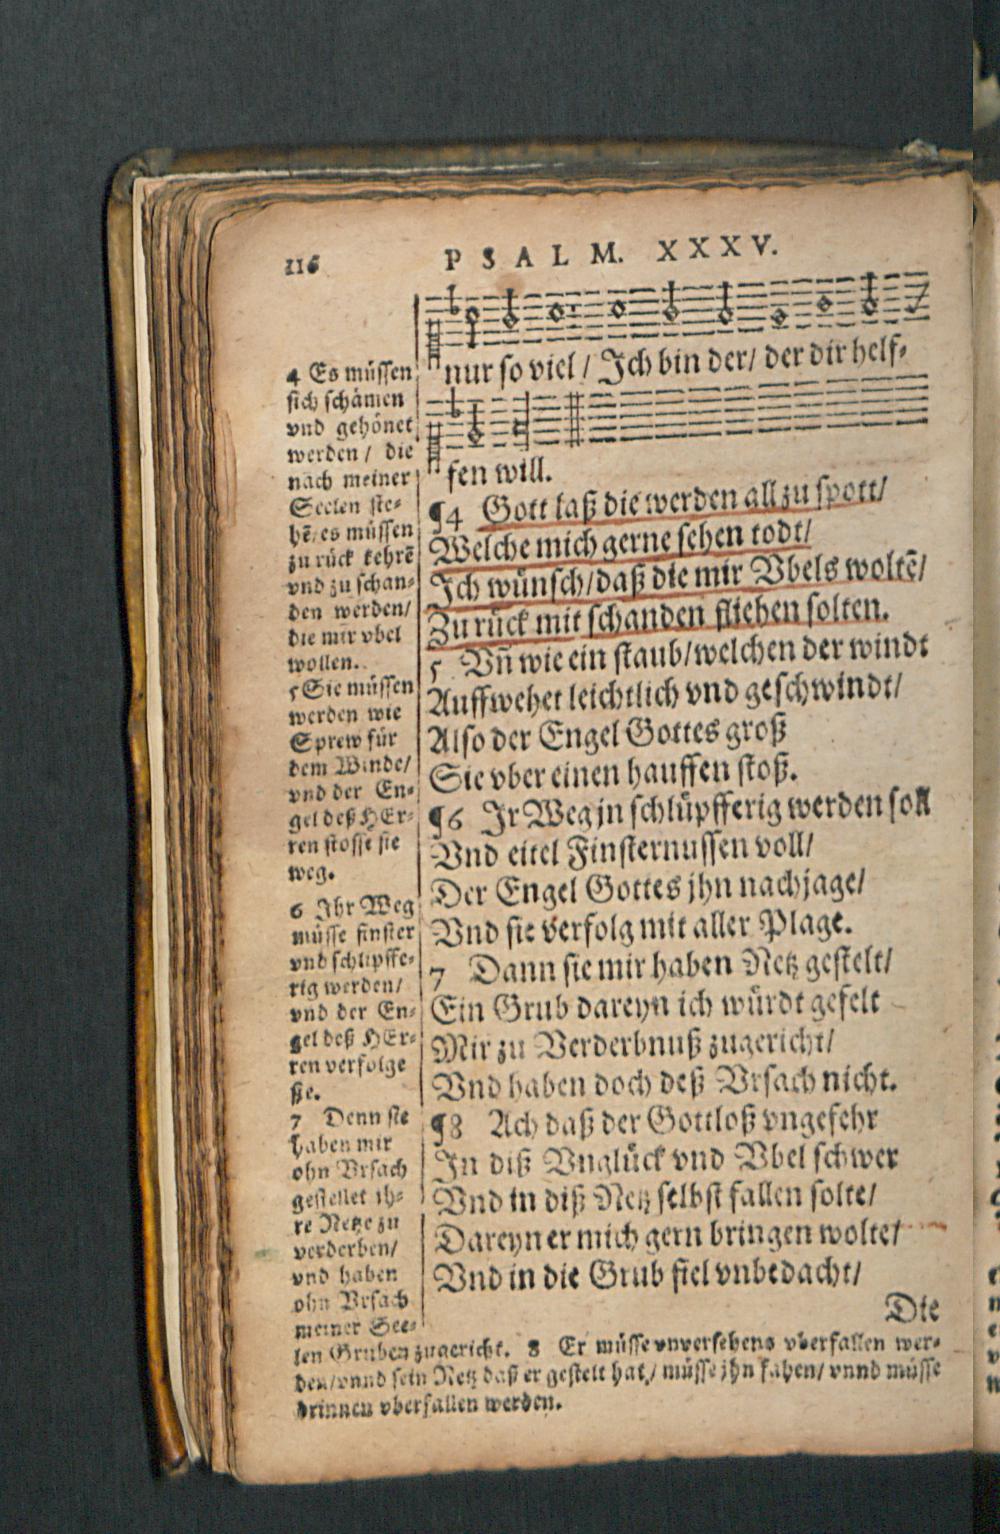 116
PSALM. XXXV.
nur so viel / Ich bin der / der dir helf-
fen will.
¶4 Gott laß die werden all zu spott/
Welche mich gerne sehen todt/
Ich wünsch/daß die mir Vbels woltẽ/
Zu rück mit schanden fliehen solten.
5 Vñ wie ein staub/welchen der windt
Auffwehet leichtlich vnd geschwindt/
Also der Engel Gottes groß
Sie vber einen hauffen stoß.
¶6 Ir Weg jn schlüpfferig werden soll
Vnd eitel Finsternussen voll/
Der Engel Gottes jhn nachjage/
Vnd sie verfolg mit aller Plage.
7 Dann sie mir haben Netz gestelt/
Ein Grub dareyn ich würdt gefelt
Mir zu Verderbnuß zugericht/
Vnd haben doch deß Vrsach nicht.
¶8 Ach daß der Gottloß vngefehr
In diß Vnglück vnd Vbel schwer
Vnd in diß Netz selbst fallen solte/
Dareyn er mich gern bringen wolte/
Vnd in die Grub fiel vnbedacht/
Die
4 Es müssen
sich schämen
vnd gehönet
werden / die
nach meiner
Seelen ste-
hẽ/es müssen
zu rück kehrẽ
vnd zu schan-
den werden/
die mir vbel
wollen.
5 Sie müssen
werden wie
Sprew für
dem Winde/
vnd der En-
gel deß HEr-
ren stosse sie
weg.
6 Ihr Weg
müsse finster
vnd schlipffe-
rig werden/
vnd der En-
gel deß HEr-
ren verfolge
sie.
7 Denn sie
haben mir
ohn Vrsach
gestellet ih-
re Netze zu
verderben/
vnd haben
ohn Vrsach
meiner See-
len Gruben zugericht. 8 Er müsse vnversehens vberfallen wer-
den/vnnd sein Netz daß er gestelt hat/ müsse jhn fahen/ vnnd müsse
drinnen vberfallen werden.